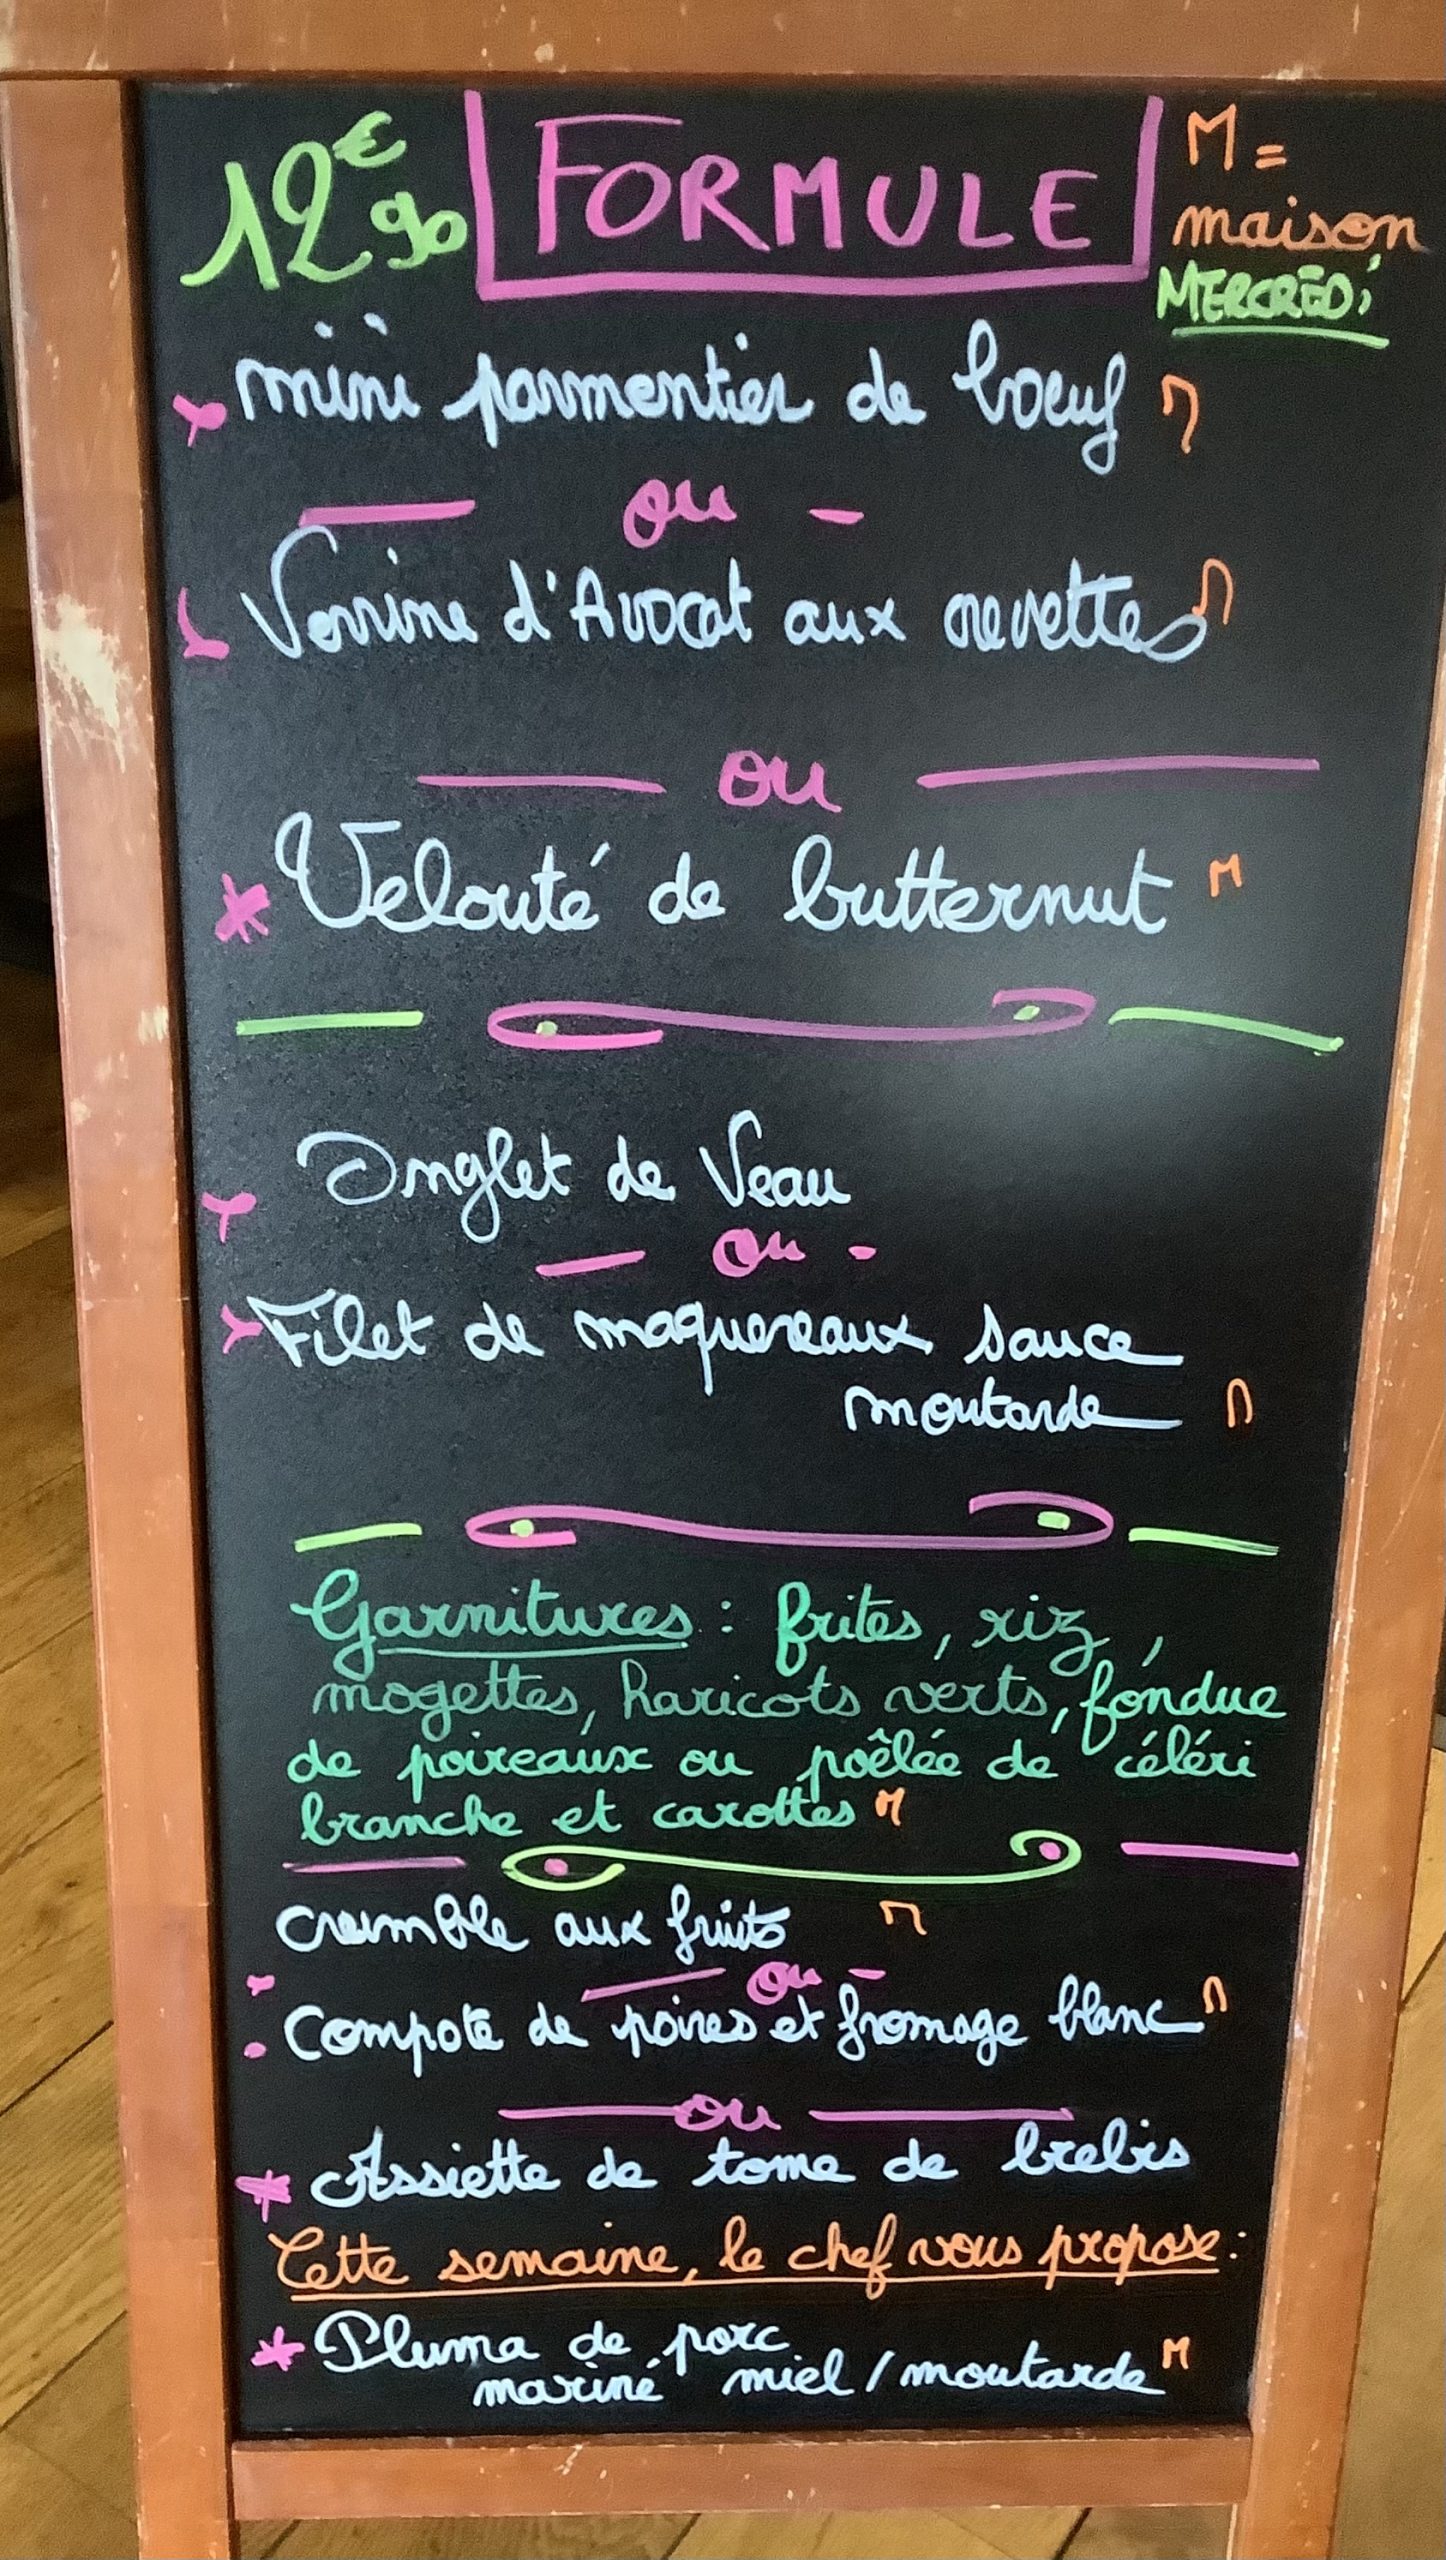 12€90 FORMULE M =
maison
MERCREDi
mini parmentier de boeuf M
ou
Verrine d'Avocat aux crevettes M
ou
Velouté de butternut M
Onglet de Veau
ou
Filet de maquereaux sauce
moutarde M
Garnitures : frites, riz,
mogettes, haricots verts, fondue
de poireaux ou poêlée de céléri
branche et carottes M
crumble aux fruits M
ou
Compote de poires et fromage blanc M
ou
Assiette de tome de brebis
Cette semaine, le chef vous propose :
Pluma de porc
mariné miel / moutarde M